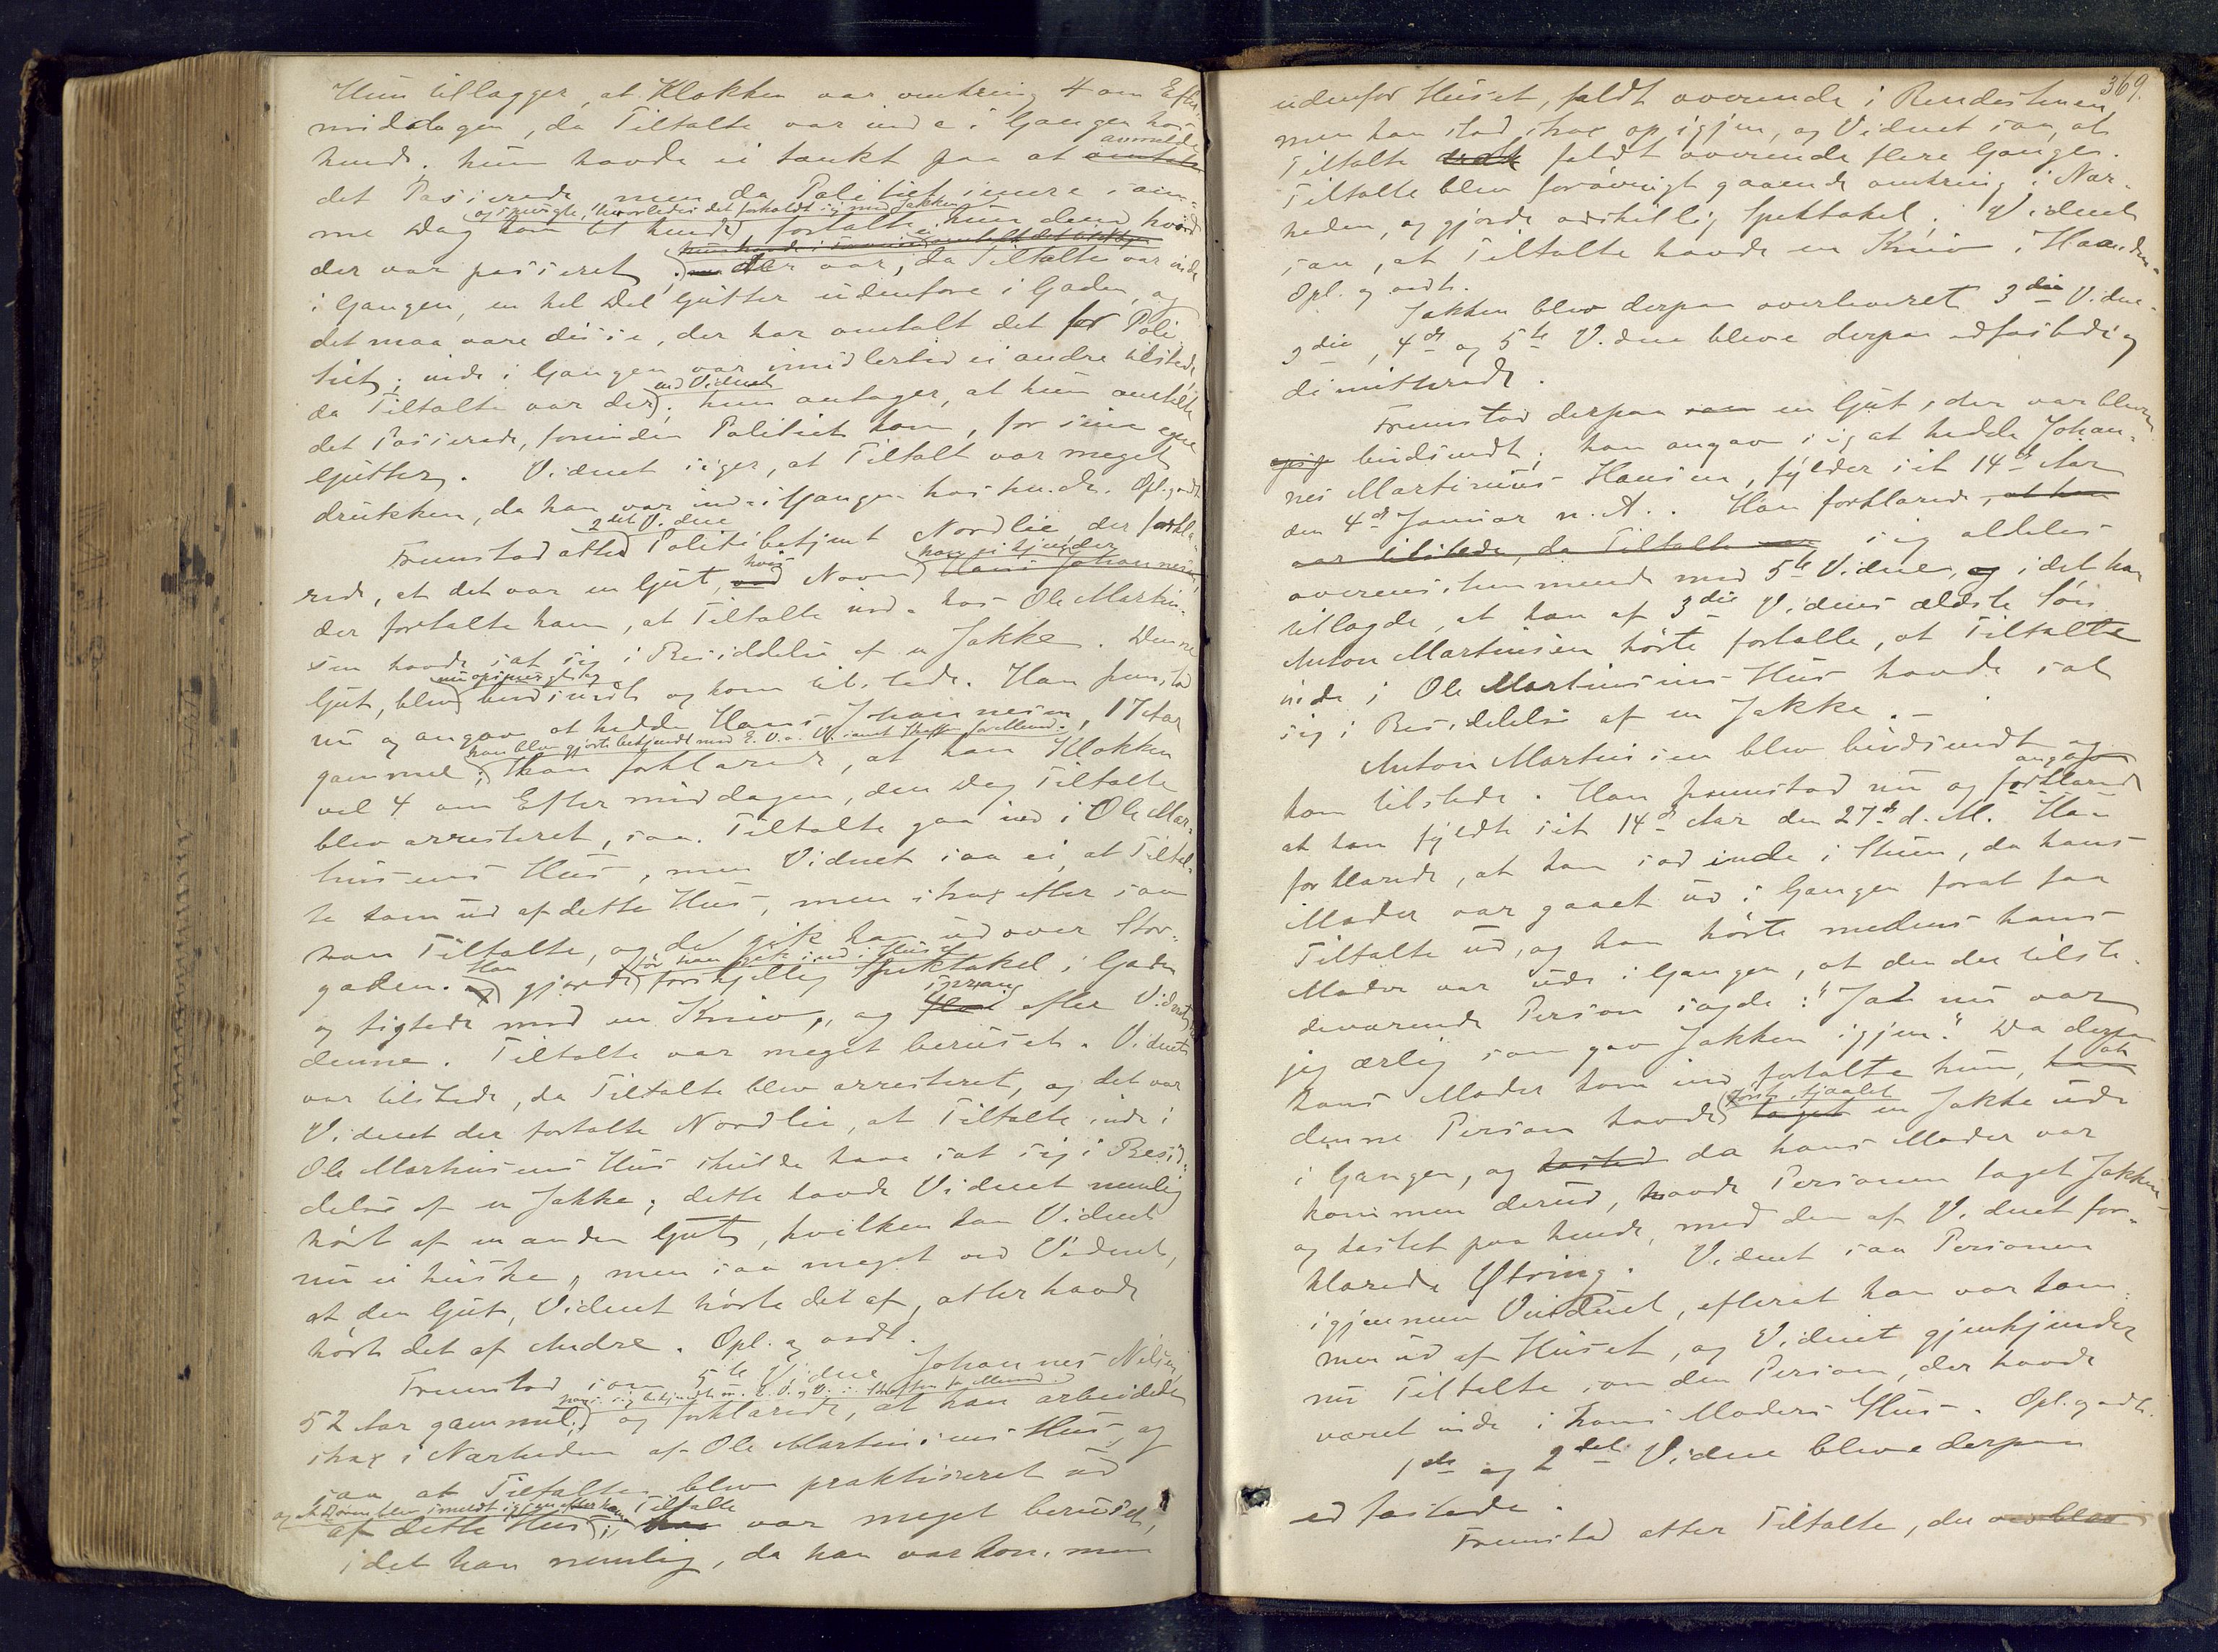 Hun tillægger, at Klokken var omkring 4 om Efter-
middagen, da Tiltalte var inde i Gangen hos
anmelde
hende. hun havde ei tænkt paa at omtale
det Passerede, men da Politiet senere sam-
og spurgte, hvorledes det forholdt sig med Jakken
me Dag kom til hende, fortalte hun dem hvad
der var passeret; der var, da Tiltalte var inde
i Gangen, en hel Del Gutter udenfore i Gaden, og
det maa være disse, der har omtalt det for Poli-
tiet; inde i Gangen var imidlertid ei andre tilstede
end Vidnet
da Tiltalte var der; hun antager, at hun omtalte
det Passerede, forinden Politiet kom, for sine egne
Gutter. Vidnet siger, at Tiltalt var meget
drukken, da han var inde i Gangen hos hende. Opl. vedt.
2det Vidne
Fremstod atter Politibetjent Nordlie der forkla-
hvis
han ei kjender
rede, at det var en Gut, ved Navn Hans Johannesen,
der fortalte ham, at Tiltalte inde hos Ole Martin-
sen havde sat sig i Besiddelse af en Jakke. Denne
nu opspurgt og
Gut, blev budsendt og kom tilstede. Han fremstod
nu og angav at hedde Hans Johannesen, 17 Aar
han blev gjort bekjendt med E. V. o. V. samt Straffen for Mened.
gammel; Han forklarede, at han Klokken
vel 4 om Eftermiddagen, den Dag Tiltalte
blev arresteret, saa Tiltalte gaa ind i Ole Mar-
tinsens Hus, men Vidnet saa ei, at Tiltal-
te kom ud af dette Hus, men strax efter saa
han Tiltalte, og da gik han ud over Stor-
Han
før han gik ind i Huset
gaden. og gjorde forskjellig Spektakel i Gaden
sprang
og sigtede med en Kniv, og efter Vidnet med
denne. Tiltalte var meget beruset. Vidnet
var tilstede, da Tiltalte blev arresteret, og det var
Vidnet der fortalte Nordlie, at Tiltalte inde i
Ole Martinsens Hus skulde have sat sig i Besid-
delse af en Jakke; dette havde Vidnet nemlig
hørt af en anden Gut, hvilken kan Vidnet
nu ei huske, men saa meget ved Vidnet,
at den Gut, Vidnet hørte det af, atter havde
hørt det af Andre. Opl. og vedt.
Fremstod som 5te Vidne Johannes Nilsen,
52 Aar gammel; og forklarede, at han arbeidede
strax i Nærheden af Ole Martinsens Hus, og
saa at Tiltalte blev praktiseret ud
og at Døren blev smeldt igjen efter ham
Tiltalte
af dette Hus; han var meget beruset,
idet han nemlig, da han var kommen
369.
udenfor Huset, faldt overende i Rendestenen,
men han stod strax op igjen, og Vidnet saa, at
Tiltalte faldt overende flere Gange.
Tiltalte blev forøvrigt gaaende omkring i Nær-
heden, og gjorde adskillig Spektakel; Vidnet
saa, at Tiltalte havde en Kniv i Haanden.
Opl. og vedt.
Jakken blev derpaa overleveret 3die Vidne.
3die, 4de og 5te Vidne bleve derpaa edfæstede og
dimitterede.
Fremstod derpaa som en Gut, der var bleven
budsendt; han angav sig at hedde Johan-
nes Martinius Hansen, fylder sit 14de Aar
den 4de Januar n. A.. Han forklarede, at han
var tilstede, da Tiltalte sig aldeles
overensstemmende med 5te Vidne, og idet han
tillagde, at han af 3die Vidnes ældste Søn
Anton Martinsen hørte fortalle, at Tiltalte
inde i Ole Martinsens Hus havde sat
sig i Besiddelse af en Jakke.
Anton Martinsen blev budsendt og
angav
kom tilstede. Han fremstod nu og forklarede
at han fyldte sit 14de Aar den 27de d. M. Han
forklarede, at han sad inde i Stuen, da hans
Moder var gaaet ud i Gangen forat faa
Tiltalte ud, og han hørte medens hans
Moder var ude i Gangen, at den der tilste-
deværende Person sagde: "Ja nu var
jeg ærlig som gav Jakken igjen". Da derpaa
at
hans Moder kom ind fortalte hun, han
først stjaalet
denne Person havde taget en Jakke ude
i Gangen, og kastet da hans Moder var
kommen derud, havde Personen taget Jakken
og kastet paa hende, med den af Vidnet for-
klarede Ytring. Vidnet saa Personen
igjennem Vinduet, efterat han var kom-
men ud af Huset, og Vidnet gjenkjender
nu Tiltalte som den Person, der havde
været inde i hans Moders Hus. Opl. og vedt.
1ste og 2det Vidne bleve derpaa
edfæstede.
Fremstod atter Tiltalte, der ved blev